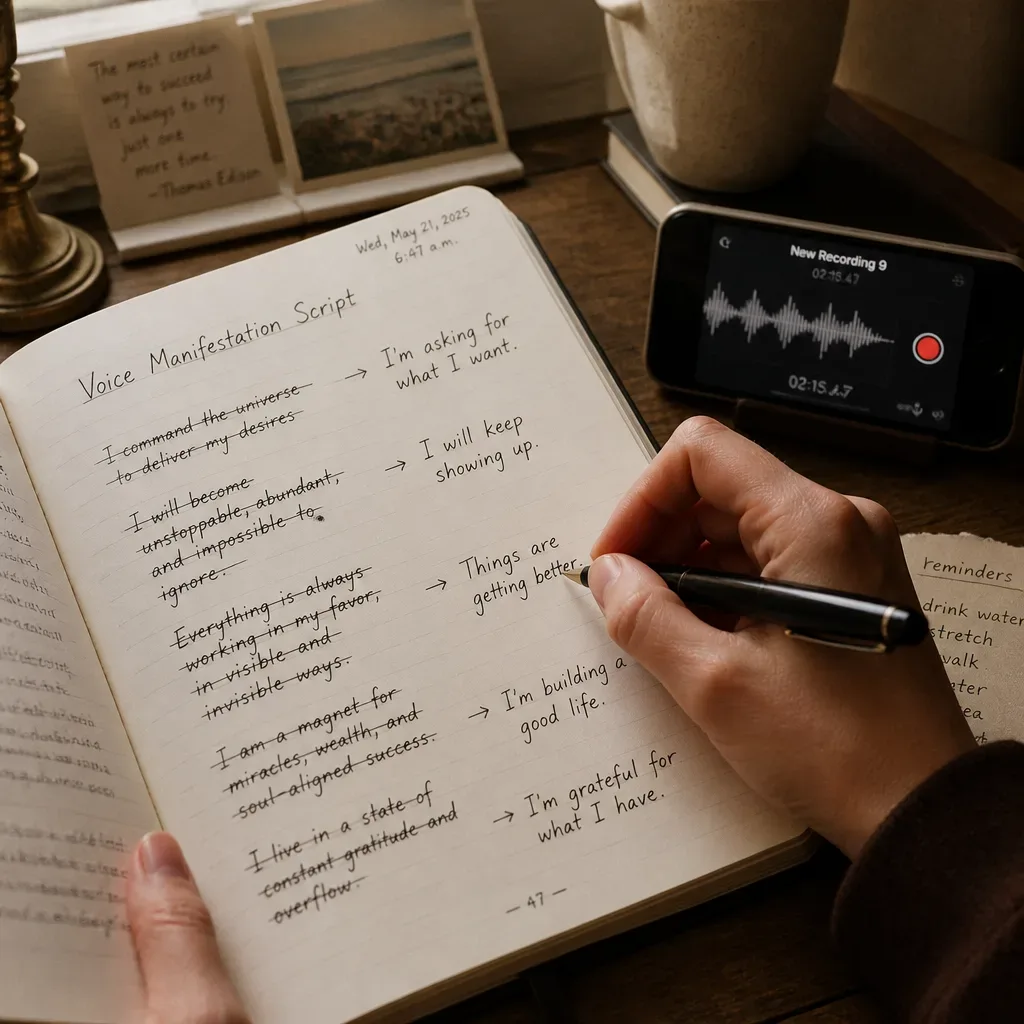 The most certain
way to succeed
is always to try
just one
more time.
–Thomas Edison
Wed, May 21, 2025
6:47 a.m.
Voice Manifestation Script
I command the universe
to deliver my desires
→ I'm asking for
what I want.
I will become
unstoppable, abundant,
and impossible to
ignore.
→ I will keep
showing up.
Everything is always
working in my favor,
in visible and
invisible ways.
→ Things are
getting better.
I am a magnet for
miracles, wealth, and
soul-aligned success.
→ I'm building a
good life.
I live in a state of
constant gratitude and
overflow.
→ I'm grateful for
what I have.
– 47 –
New Recording 9
reminders
drink water
stretch